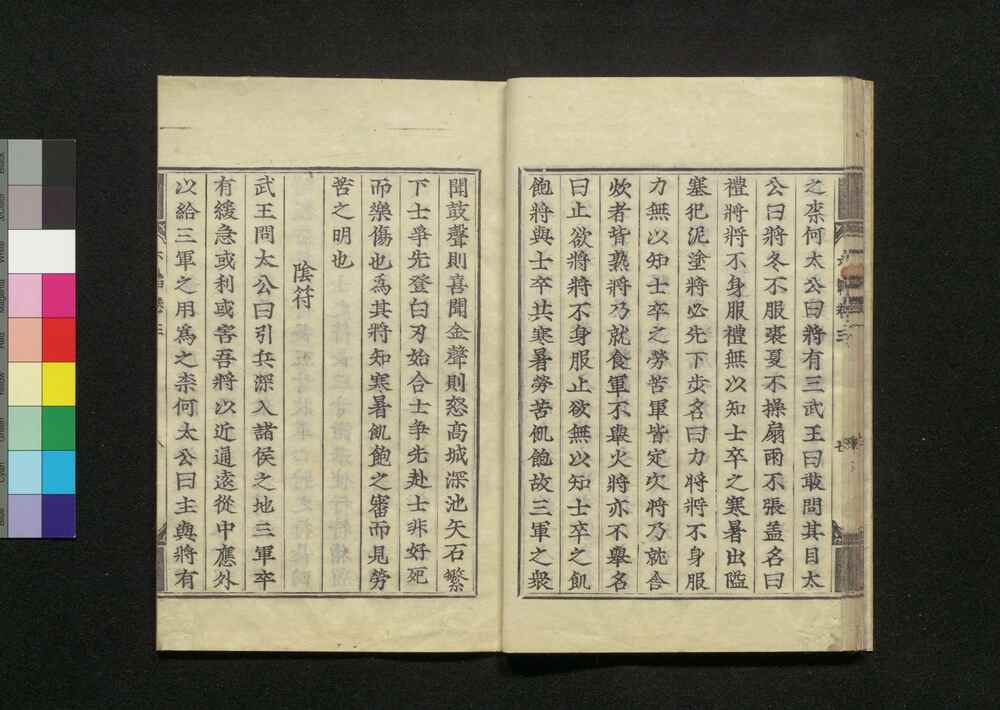 之柰何太公曰將有三武王曰敢問其目太
公曰將冬不服裘夏不操扇雨不張盖名曰
禮將將不身服禮無以知士卒之寒暑出隘
塞犯泥塗將必先下步名曰力將將不身服
力無以知士卒之勞苦軍皆定次將乃就舎
炊者皆熟將乃就食軍不擧火將亦不擧名
曰止欲將將不身服止欲無以知士卒之飢
飽將與士卒共寒暑勞苦飢飽故三軍之衆
聞鼓聲則喜聞金聲則怒高城深池矢石繁
下士爭先登白刃始合士爭先赴士非好死
而樂傷也爲其將知寒暑飢飽之審而見勞
苦之明也
陰符
武王問太公曰引兵深入諸侯之地三軍卒
有緩急或利或害吾將以近通遠從中應外
以給三軍之用爲之柰何太公曰主與將有